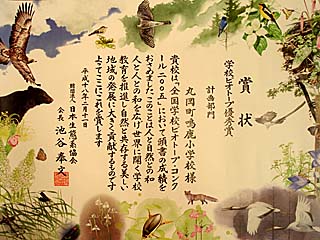 賞状
学校ビオトープ優秀賞
計画部門
丸岡町鳴鹿小学校様
貴校は、「全国学校ビオトープ・コンク
ール二〇〇五」において頭書の成績を
おさめました このことは人と自然との和
人と人との和を広げ世界に開く学校、
教育を推進し自然と共存する美しい
地域の発展に大きく貢献するものです
よってここにこれを賞します
平成十八年二月十一日
財団法人 日本生態系協会
会長 池谷奉文